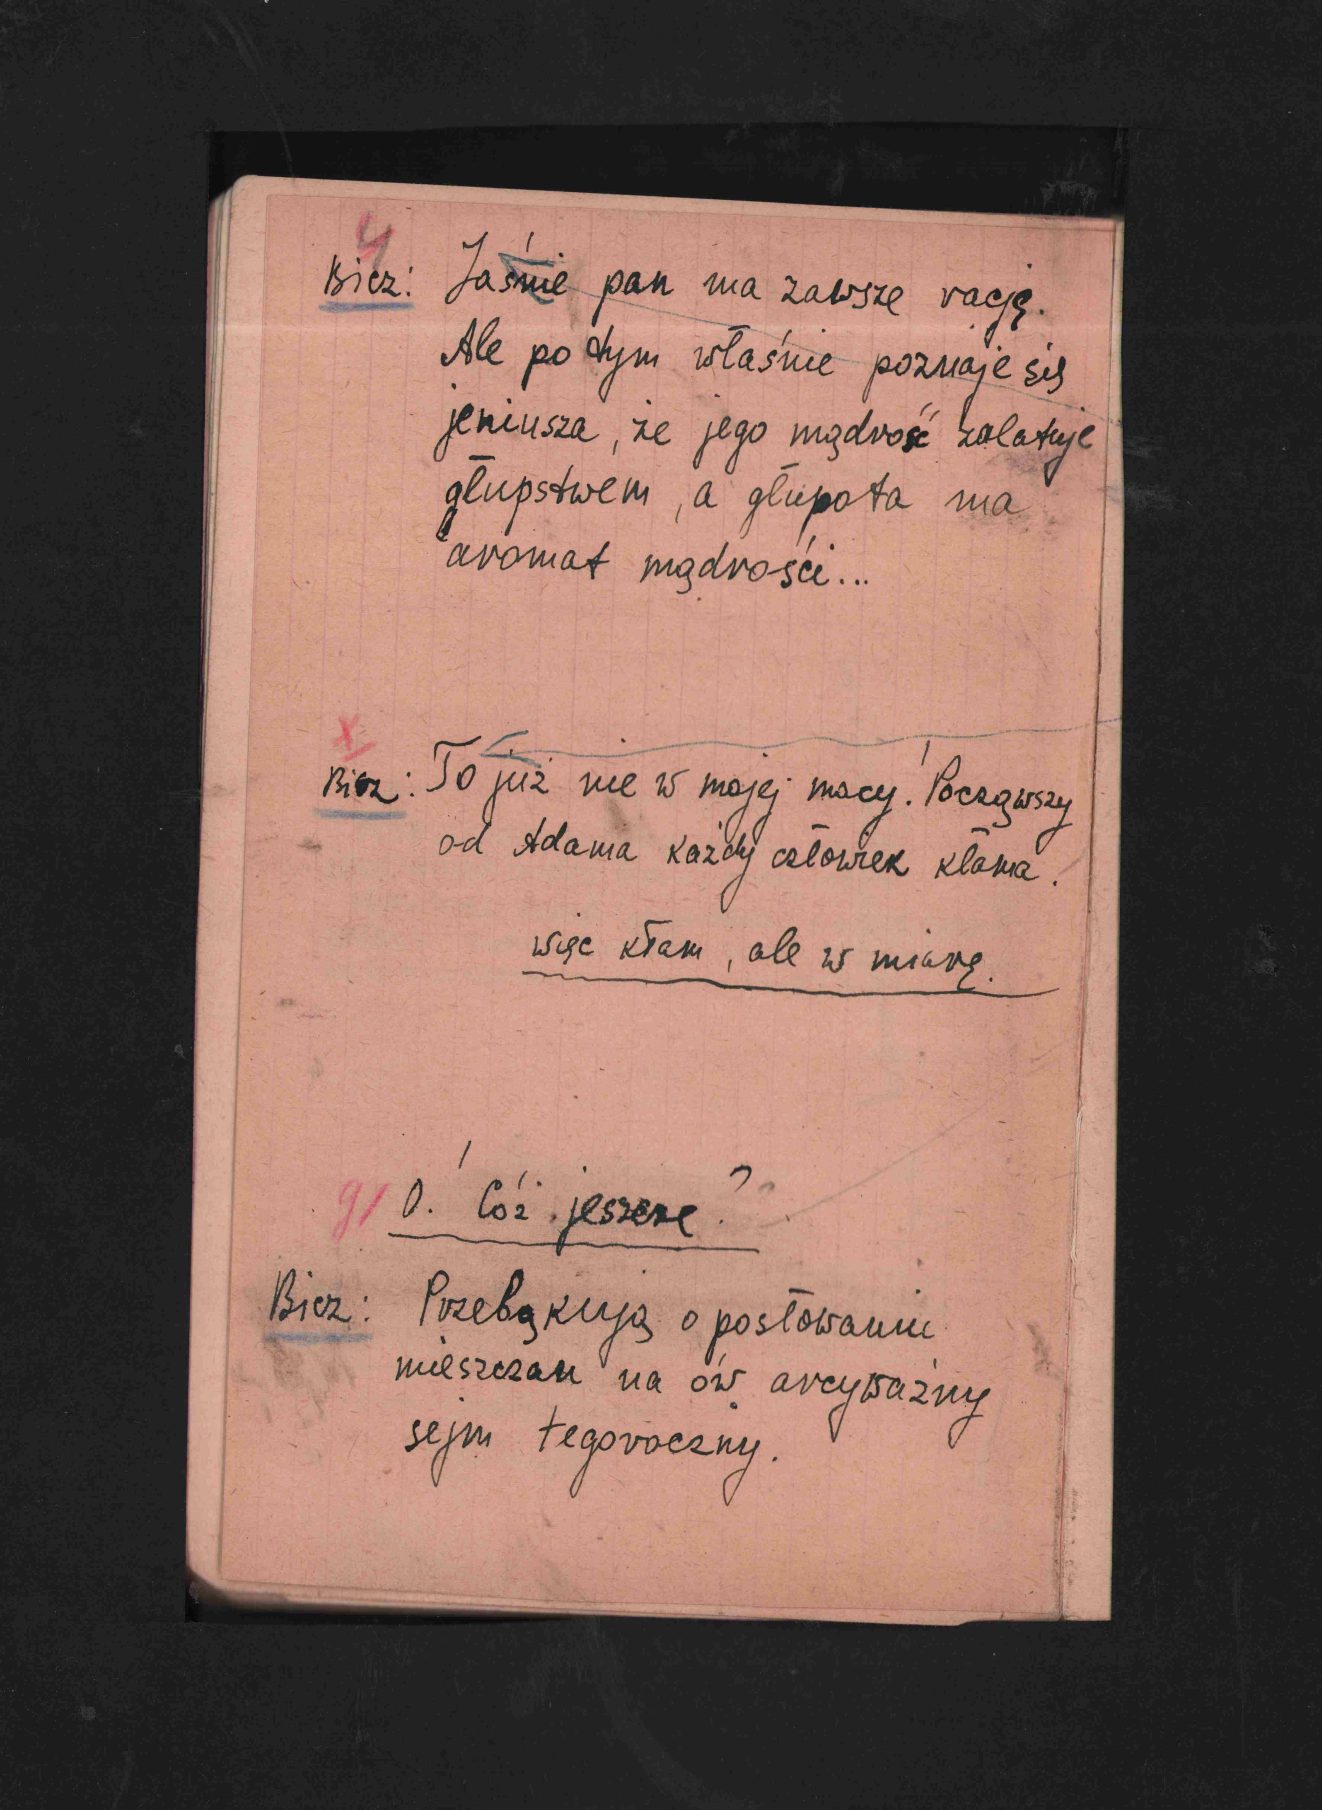 4
Bicz: Jaśnie pan ma zawsze rację.
Ale po tym właśnie poznaje się
jeniusza, że jego mądrość zalatuje
głupstwem, a głupota ma
aromat mądrości...
x
Bicz: To już nie w mojej mocy! Począwszy
od Adama każdy człowiek kłama.
więc kłam, ale w miarę.
g/ O! Cóż jeszcze?
Bicz: Przebąkują o posłowaniu
mieszczan na ów arcyważny
sejm tegoroczny.